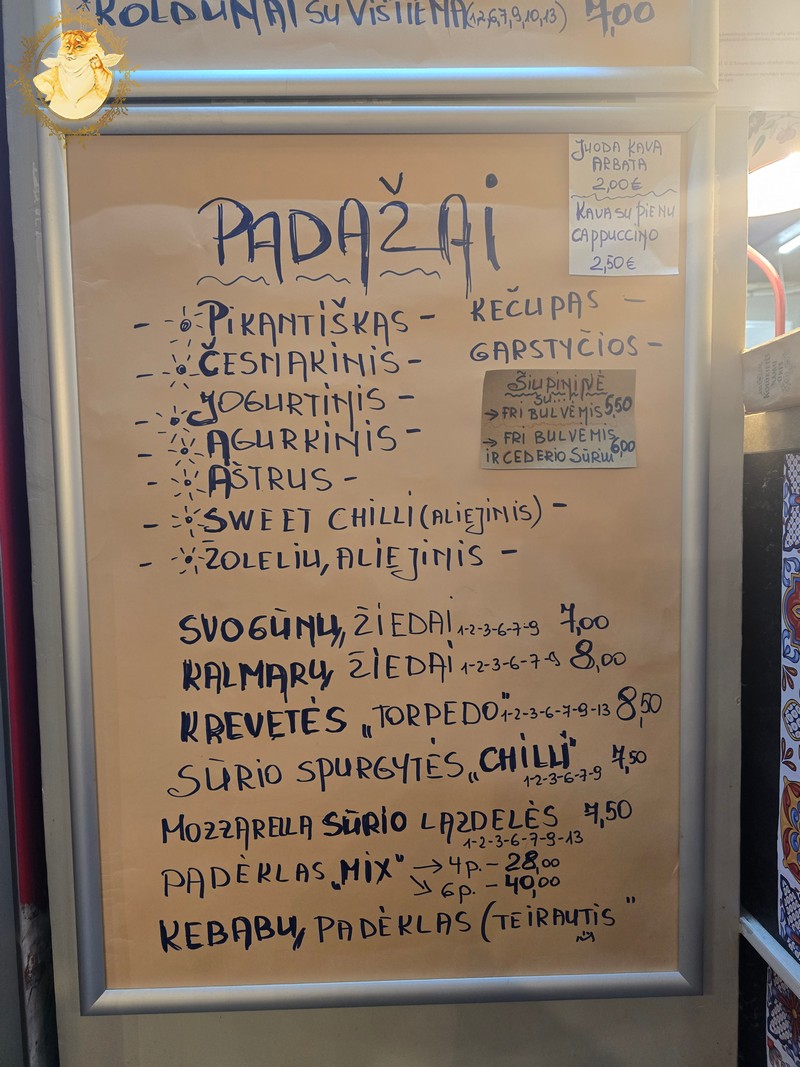 *KOLDŪNAI SU VIŠTIENA (1,2,6,7,9,10,13) 7,00
JUODA KAVA
ARBATA
2,00€
KAVA SU PIENU
CAPPUCCINO
2,50€
PADAŽAI
- PIKANTIŠKAS -
- ČESNAKINIS -
- JOGURTINIS -
- AGURKINIS -
- AŠTRUS -
- SWEET CHILLI (ALIEJINIS) -
- ŽOLELIŲ, ALIEJINIS -
KEČUPAS -
GARSTYČIOS -
ŠIUPININĖ
SU...
→ FRI BULVĖMIS 5,50
→ FRI BULVĖMIS
IR ČEDERIO SŪRIU 6,00
SVOGŪNŲ ŽIEDAI 1-2-3-6-7-9 7,00
KALMARŲ ŽIEDAI 1-2-3-6-7-9 8,00
KREVETĖS „TORPEDO" 1-2-3-6-7-9-13 8,50
SŪRIO SPURGYTĖS „CHILLI" 7,50
1-2-3-6-7-9
MOZZARELLA SŪRIO LAZDELĖS 7,50
1-2-3-6-7-9-13
PADĖKLAS „MIX" → 4 p. - 28,00
↘ 6 p. - 40,00
KEBABŲ PADĖKLAS (TEIRAUTIS"